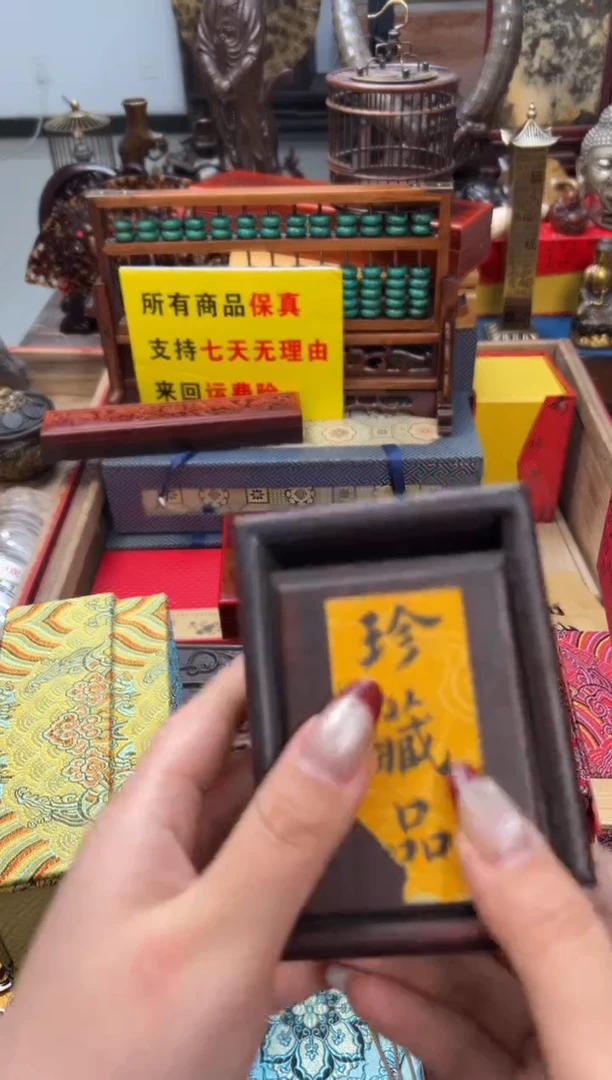 所有商品保真
支持七天无理由
来回运费险
珍
藏
品